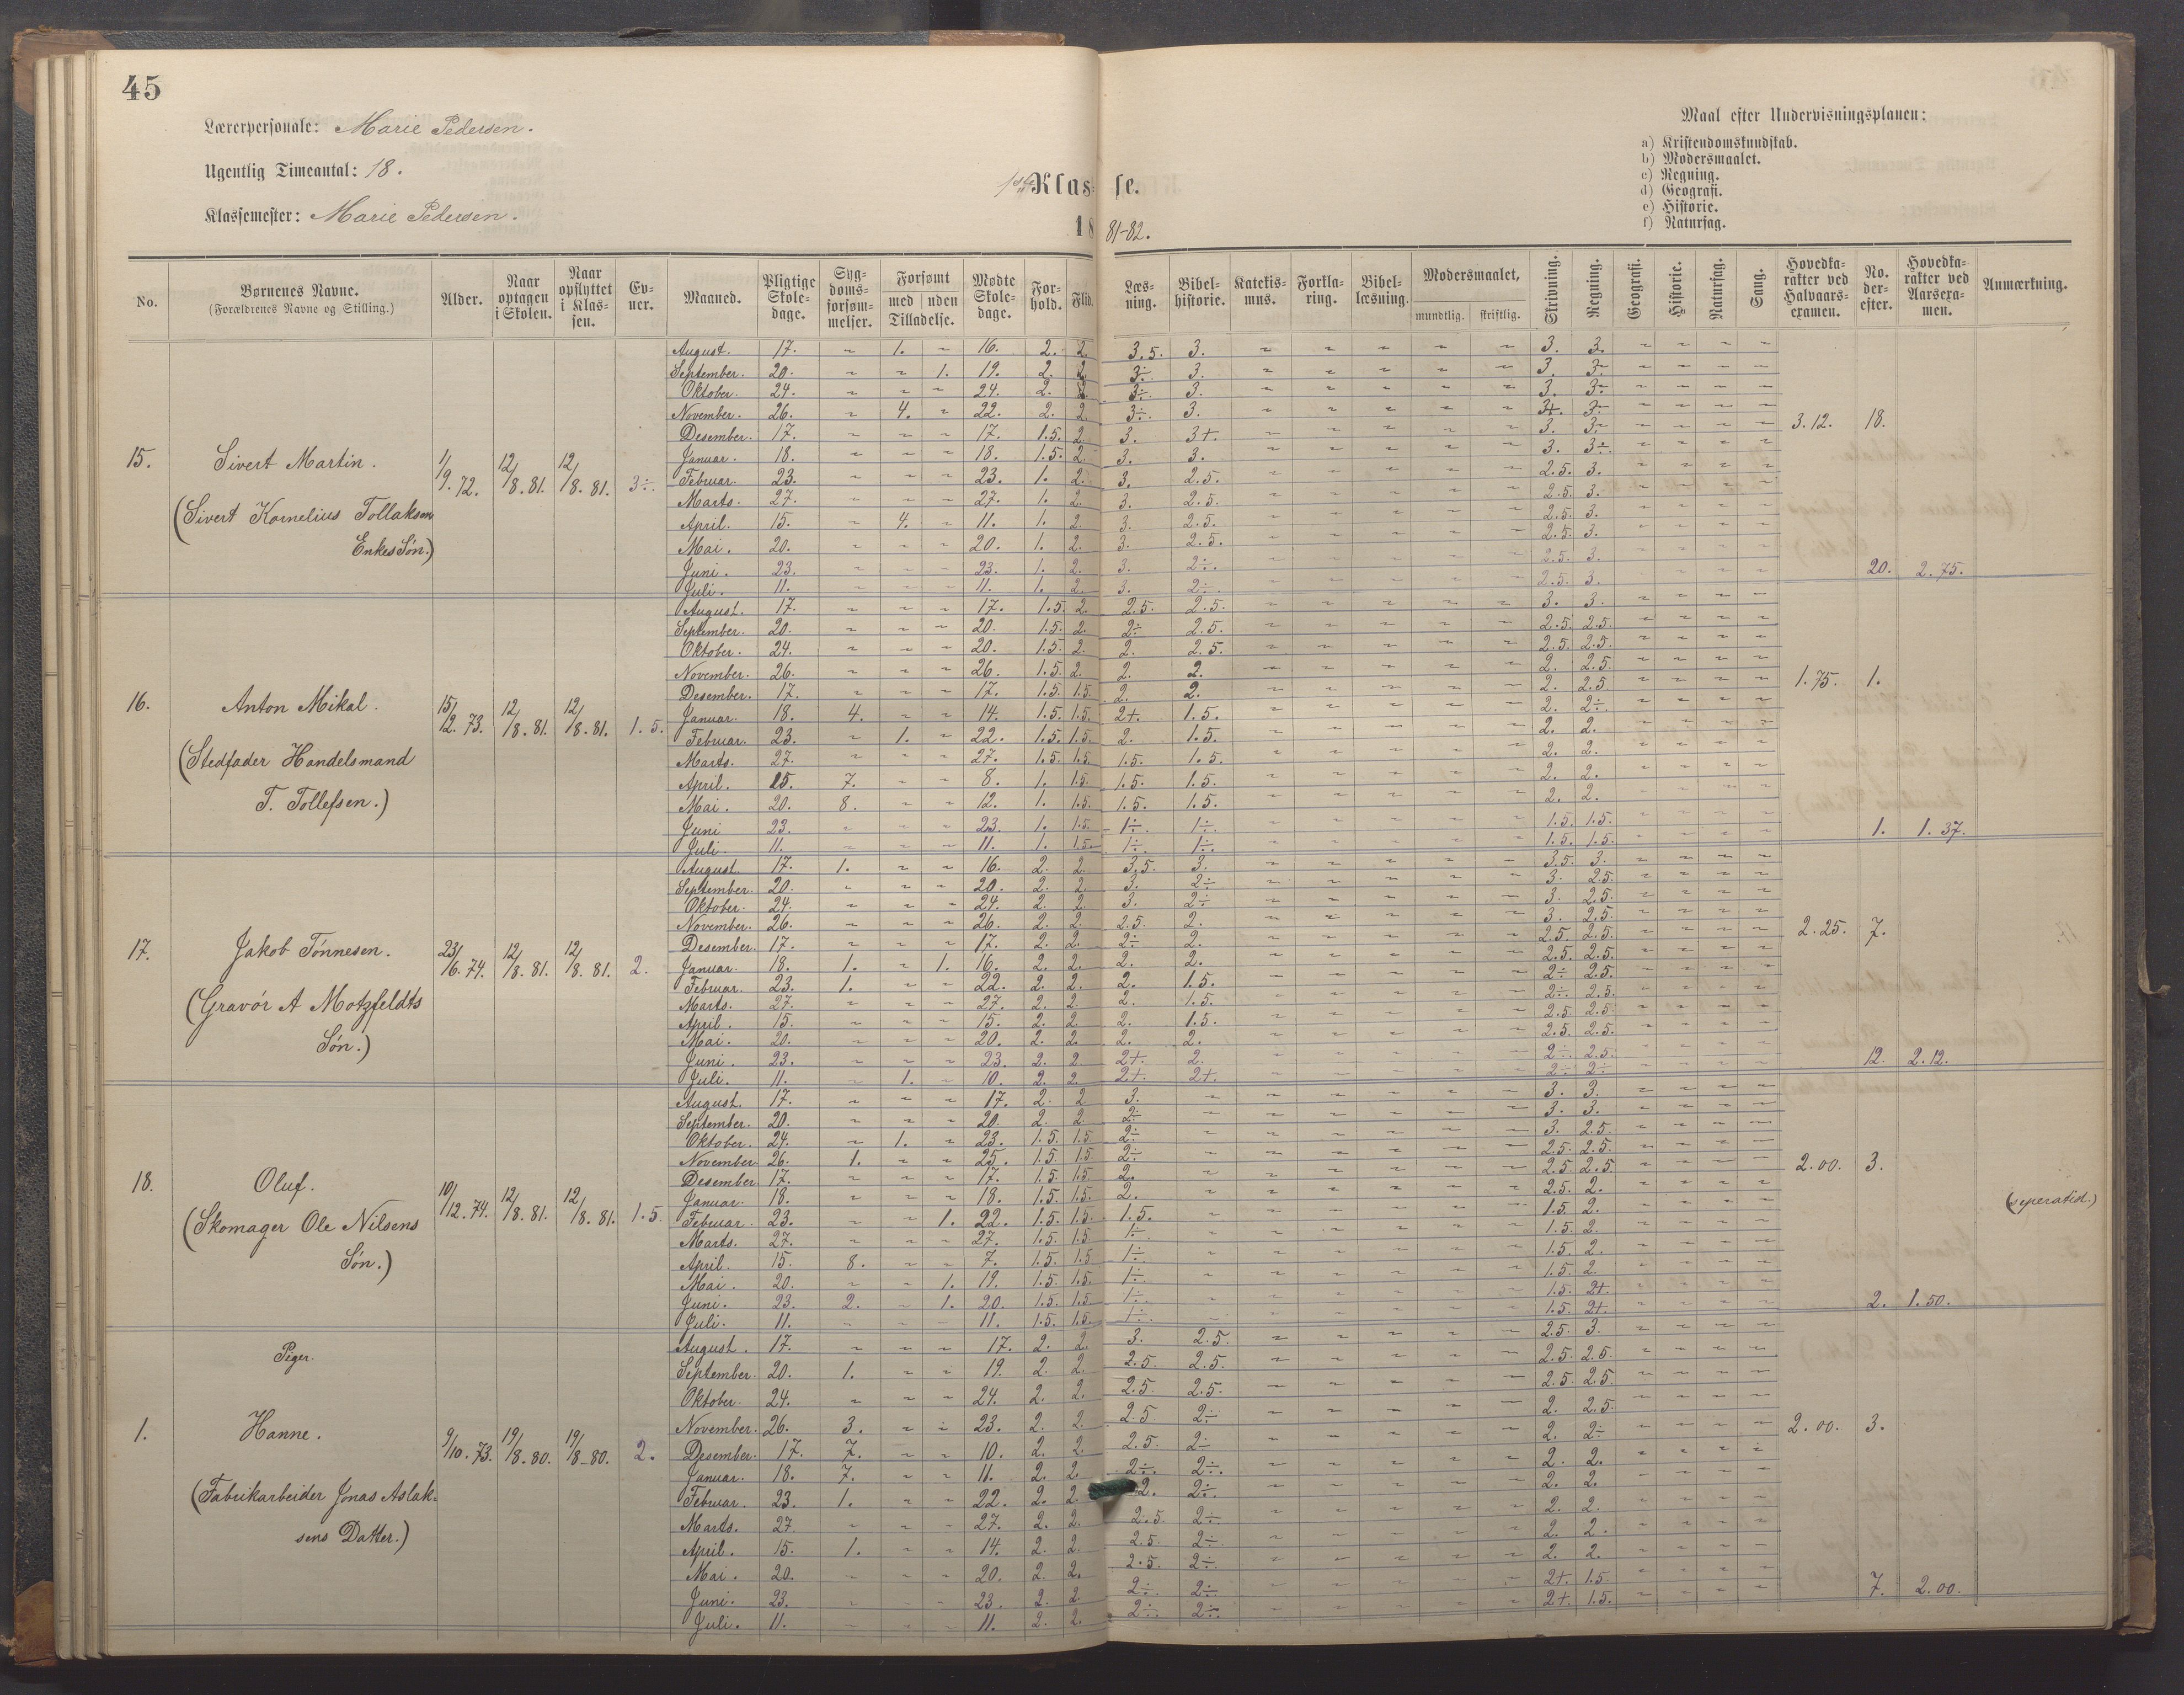 45
Lærerpersonale: Marie Pedersen.
Ugentlig Timeantal: 18.
Klassemester: Marie Pedersen.
1ste Klasse.
1881-82.
Maal efter Undervisningsplanen:
a) Kristendomskundskab.
b) Modersmaalet.
c) Regning.
d) Geografi.
e) Historie.
f) Naturfag.
No. | Børnenes Navne. (Forældrenes Navne og Stilling.) | Alder. | Naar optagen i Skolen. | Naar opflyttet i Klassen. | Evner. | Maaned. | Pligtige Skoledage. | Sygdomsforsømmelser. | Forsømt med uden Tilladelse. | Mødte Skoledage. | Forhold. | Flid. | Læsning. | Bibelhistorie. | Katekismus. | Forklaring. | Bibellæsning. | Modersmaalet, mundtlig. skriftlig. | Skrivning. | Regning. | Geografi. | Historie. | Naturfag. | Sang. | Hovedkarakter ved Halvaarsexamen. | No. derefter. | Hovedkarakter ved Aarsexamen. | Anmærkning.
15. Sivert Martin. (Sivert Kornelius Tollaksens Enkes Søn.) 1/9. 72. 12/8. 81. 12/8. 81. 3÷.
August. 17. ~ 1. ~ 16. 2. 2. 3.5. 3. 3. 3.
September. 20. ~ ~ 1. 19. 2. 2. 3÷. 3. 3. 3÷
Oktober. 24. ~ ~ ~ 24. 2. 2. 3÷. 3. 3. 3÷
November. 26. ~ 4. ~ 22. 2. 2. 3÷. 3. 3+. 3÷
Desember. 17. ~ ~ ~ 17. 1.5. 2. 3. 3+. 3. 3÷
Januar. 18. ~ ~ ~ 18. 1.5. 2. 3. 3. 3. 3÷
Februar. 23. ~ ~ ~ 23. 1. 2. 3. 2.5. 2.5. 3.
Marts. 27. ~ ~ ~ 27. 1. 2. 3. 2.5. 2.5. 3.
April. 15. ~ 4. ~ 11. 1. 2. 3. 2.5. 2.5. 3.
Mai. 20. ~ ~ ~ 20. 1. 2. 3. 2.5. 2.5. 3.
Juni. 23. ~ ~ ~ 23. 1. 2. 3. 2÷. 2.5. 3.
Juli. 11. ~ ~ ~ 11. 1. 2. 3. 2÷. 2.5. 3.
3.12. 18. 20. 2.75.
16. Anton Mikal. (Stedfader Handelsmand T. Tollefsen.) 15/12. 73. 12/8. 81. 12/8. 81. 1.5.
August. 17. ~ ~ ~ 17. 1.5. 2. 2.5. 2.5. 3. 3.
September. 20. ~ ~ ~ 20. 1.5. 2. 2÷ 2.5. 2.5. 2.5.
Oktober. 24. ~ ~ ~ 20. 1.5. 2. 2. 2.5. 2.5. 2.5.
November. 26. ~ ~ ~ 26. 1.5. 2. 2. 2. 2. 2.5.
Desember. 17. ~ ~ ~ 17. 1.5. 1.5. 2. 2. 2. 2.5
Januar. 18. 4. ~ ~ 14. 1.5. 1.5. 2+. 1.5. 2. 2÷.
Februar. 23. ~ 1. ~ 22. 1.5. 1.5. 2. 1.5. 2. 2.
Marts. 27. ~ ~ ~ 27. 1.5. 1.5. 1.5. 1.5. 2. 2.
April. 15. 7. ~ ~ 8. 1. 1.5. 1.5. 1.5. 2. 2.
Mai. 20. 8. ~ ~ 12. 1. 1.5. 1.5. 1.5. 2. 2.
Juni 23. ~ ~ ~ 23. 1. 1.5. 1÷. 1÷. 1.5. 1.5.
Juli. 11. ~ ~ ~ 11. 1. 1.5. 1÷. 1÷. 1.5. 1.5.
1.75. 1. 1. 1.37.
17. Jakob Tønnesen. (Gravør A Motzfeldts Søn.) 23/6. 74. 12/8. 81. 12/8. 81. 2.
August. 17. 1. ~ ~ 16. 2. 2. 3.5. 3. 3.5. 3.
September. 20. ~ ~ ~ 20. 2. 2. 3. 2÷ 3. 2.5.
Oktober. 24. ~ ~ ~ 24. 2. 2. 3. 2÷ 3. 2.5.
November. 26. ~ ~ ~ 26. 2. 2. 2.5. 2. 3. 2.5.
Desember. 17. ~ ~ ~ 17. 2. 2. 2÷ 2. 2.5. 2.5.
Januar. 18. 1. ~ 1. 16. 2. 2. 2. 2. 2.5. 2.5.
Februar. 23. 1. ~ ~ 22. 2. 2. 2. 1.5. 2÷ 2.5.
Marts. 27. ~ ~ ~ 27. 2. 2. 2. 1.5. 2÷. 2.5.
April. 15. ~ ~ ~ 15. 2. 2. 2. 1.5. 2.5. 2.5
Mai. 20. ~ ~ ~ 20. 2. 2. 2. 2. 2.5. 2.5.
Juni. 23. ~ ~ ~ 23. 2. 2. 2+. 2. 2÷. 2.5.
Juli. 11. ~ 1. ~ 10. 2. 2. 2+. 2+. 2÷ 2÷
2.25. 7. 12. 2.12.
18. Oluf. (Skomager Ole Nilsens Søn.) 10/12. 74. 12/8. 81. 12/8. 81. 1.5.
August. 17. ~ ~ ~ 17. 2. 2 3. ~ 3. 3.
September. 20. ~ ~ ~ 20. 2. 2 2÷ ~ 3. 3.
Oktober. 24. ~ 1. ~ 23. 1.5. 1.5 2÷ ~ 3. 2.5.
November. 26. 1. ~ ~ 25. 1.5. 1.5. 2÷ ~ 2.5. 2.5.
Desember. 17. ~ ~ ~ 17. 1.5. 1.5. 2. ~ 2.5. 2.5.
Januar. 18. ~ ~ ~ 18. 1.5. 1.5. 2. ~ 2.5. 2.
Februar. 23. ~ ~ 1. 22. 1.5. 1.5. 1.5. ~ 1.5. 2.
Marts. 27. ~ ~ ~ 27. 1.5. 1.5 1÷ ~ 1.5. 2.
April. 15. 8. ~ ~ 7. 1.5. 1.5 1÷ ~ 1.5. 2.
Mai. 20. ~ ~ 1. 19. 1.5. 1.5. 1÷ ~ 1.5. 2.
Juni. 23. 2. ~ 1. 20. 1.5. 1.5 1÷ ~ 1.5. 2+.
Juli. 11. ~ ~ ~ 11. 1.5. 1.5. 1÷. ~ 1.5. 2+.
2.00. 3. 2. 1.50.
Piger.
1. Hanne. (Fabrikarbeider Jonas Aslaksens Datter.) 9/10. 73. 19/8. 80. 19/8-80. 2.
August. 17. ~ ~ ~ 17. 2. 2. 3. 2.5. 2.5. 3.
September. 20. 1. ~ ~ 19. 2. 2. 2.5. 2.5. 2.5. 2.5.
Oktober. 24. ~ ~ ~ 24. 2. 2. 2.5. 2.5. 2.5. 2.5
November. 26. 3. ~ ~ 23. 2. 2. 2.5 2÷ 2. 2.5.
Desember. 17. 7. ~ ~ 10. 2. 2. 2.5. 2÷ 2. 2÷
Januar. 18. 7. ~ ~ 11. 2. 2. 2÷. 2÷. 2. 2.
Februar. 23. 1. ~ ~ 22. 2. 2. 2. 2÷. 2. 2.
Marts. 27. ~ ~ ~ 27. 2. 2. 2.5. 2÷ 2. 2.
April. 15. 1. ~ ~ 14. 2. 2. 2.5. 2÷ 2. 2.
Mai. 20. ~ ~ ~ 20. 2. 2. 2.5. 2÷. 2. 2.
Juni. 23. ~ ~ ~ 23. 2. 2. 2÷ 2÷ 2+. 1.5
Juli. 11. ~ ~ ~ 11. 2. 2. 2÷. 2÷ 2+. 1.5.
2.00. 3. 7. 2.00.